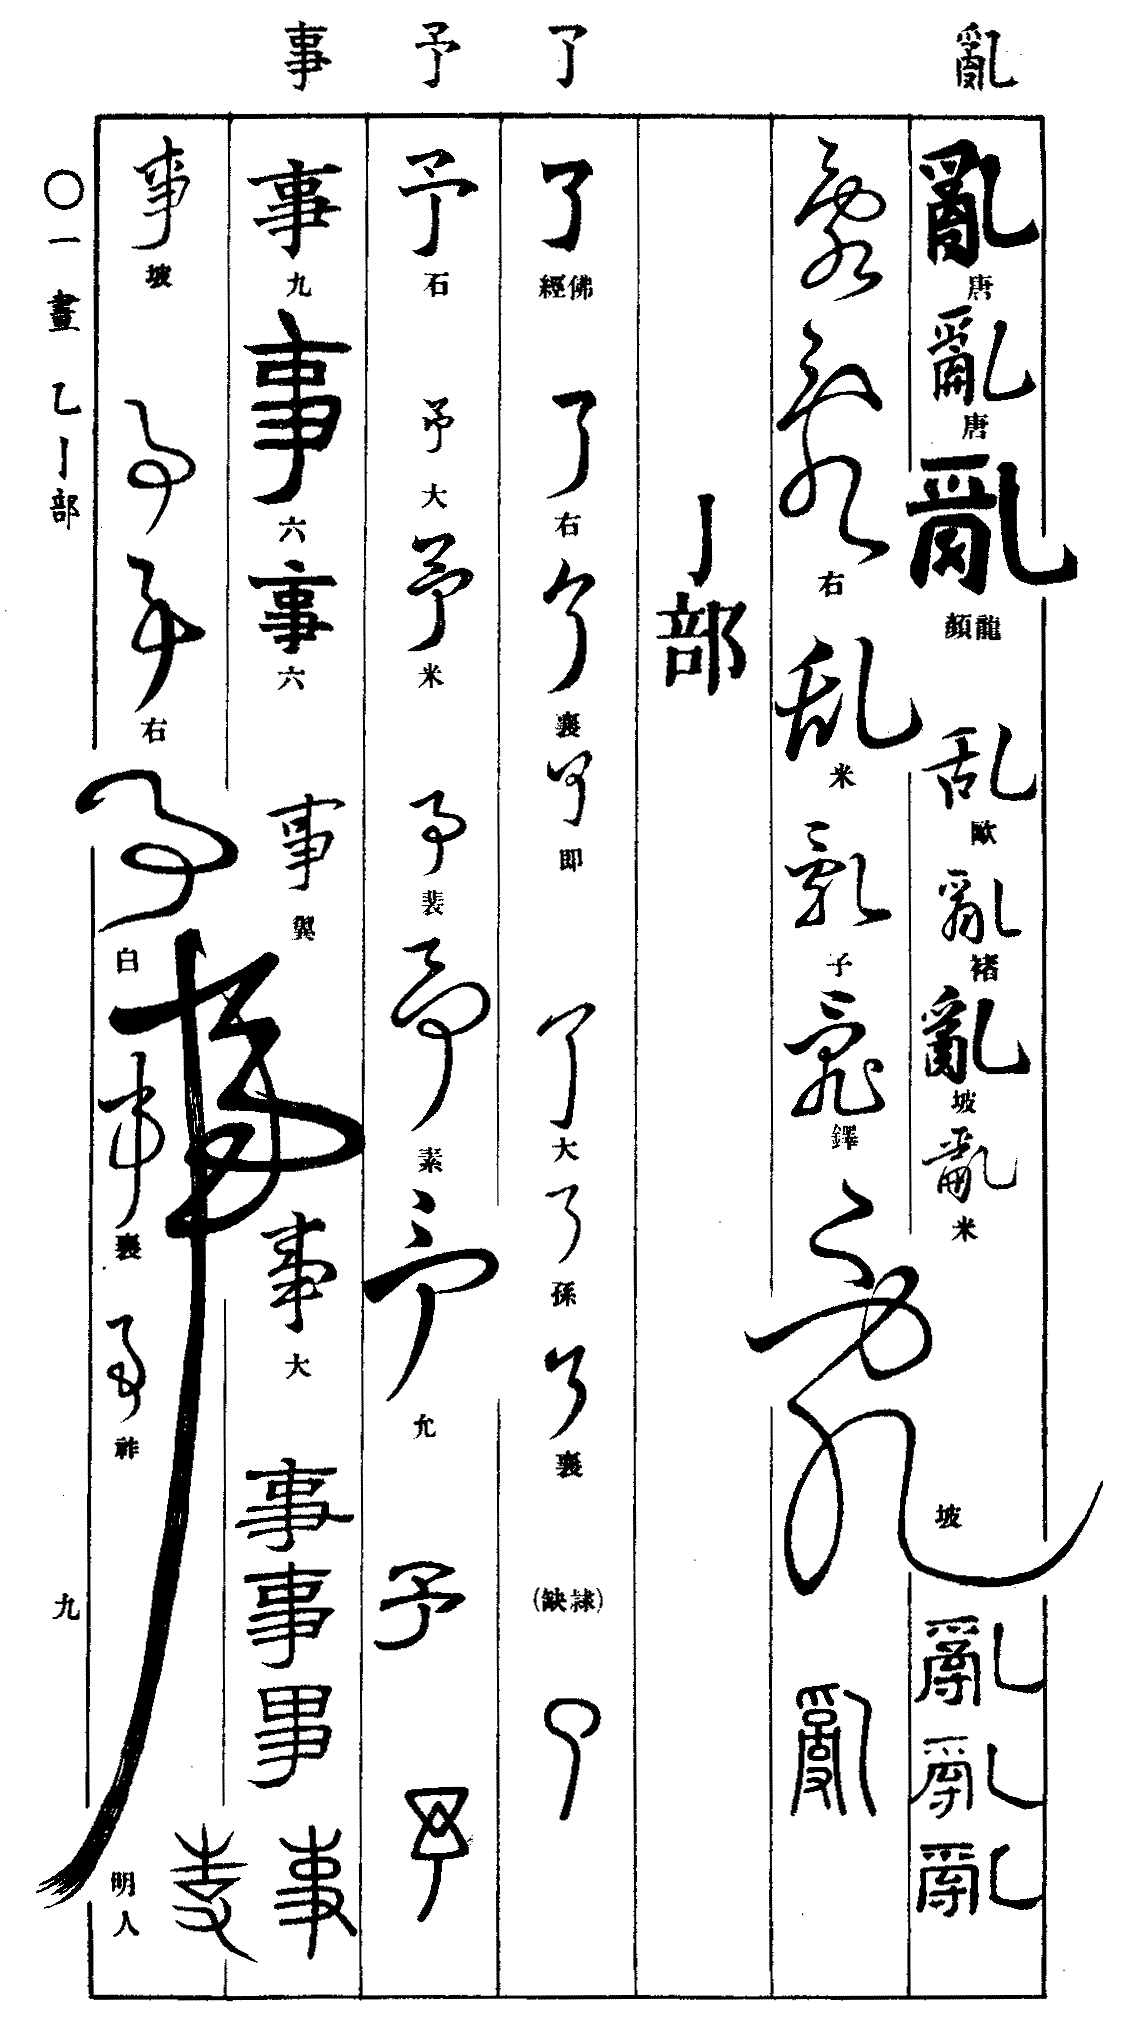 亂
了
予
事
亂 唐
亂 唐
亂 顏龍
乱 歐
亂 褚
亂 坡
亂 米
亂
亂
亂
亂
亂 右
乱 米
亂 子
亂 鐸
亂 坡
亂
亅部
了 佛經
了 右
了 襄
了 即
了 大
了 孫
了 襄
(隷缺)
了
予 石
予 大
予 米
予 裴
予 素
予 允
予
予
事 九
事 六
事 六
事 翼
事 大
事
事
事
事
事 坡
事
事 右
事 白
事 襄
事 祚
事 明人
事
〇一畫 乙亅部
九